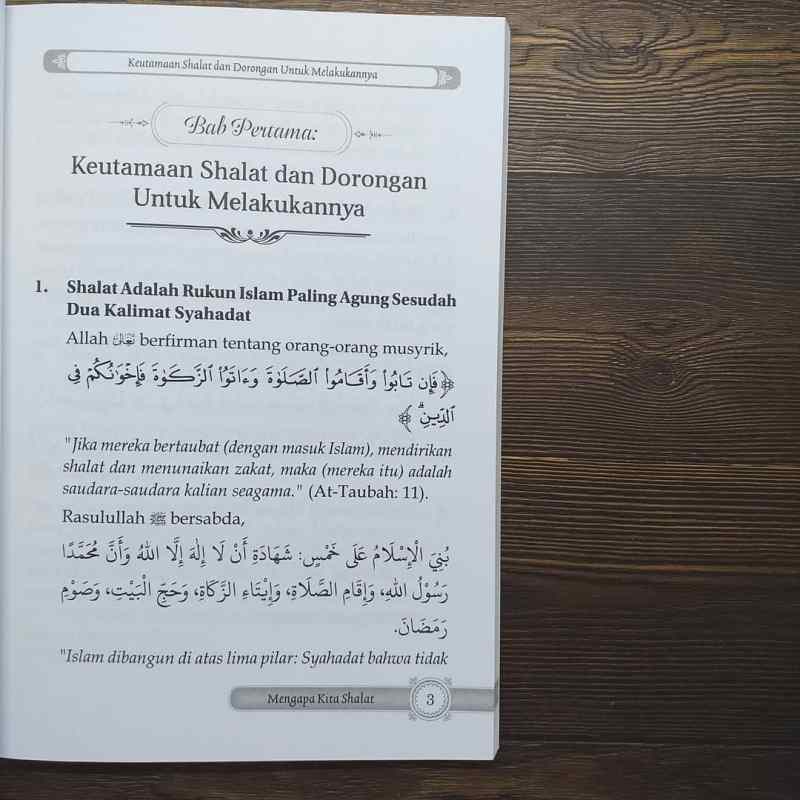 Keutamaan Shalat dan Dorongan Untuk Melakukannya
Bab Pertama:
Keutamaan Shalat dan Dorongan
Untuk Melakukannya
1. Shalat Adalah Rukun Islam Paling Agung Sesudah
Dua Kalimat Syahadat
Allah تعالى berfirman tentang orang-orang musyrik,
﴿فَإِن تَابُوا۟ وَأَقَامُوا۟ ٱلصَّلَوٰةَ وَءَاتَوُا۟ ٱلزَّكَوٰةَ فَإِخْوَٰنُكُمْ فِى
ٱلدِّينِ ۗ﴾
"Jika mereka bertaubat (dengan masuk Islam), mendirikan
shalat dan menunaikan zakat, maka (mereka itu) adalah
saudara-saudara kalian seagama." (At-Taubah: 11).
Rasulullah ﷺ bersabda,
بُنِيَ الْإِسْلَامُ عَلَى خَمْسٍ: شَهَادَةِ أَنْ لَا إِلَهَ إِلَّا اللهُ وَأَنَّ مُحَمَّدًا
رَسُوْلُ اللهِ، وَإِقَامِ الصَّلَاةِ، وَإِيْتَاءِ الزَّكَاةِ، وَحَجِّ الْبَيْتِ، وَصَوْمِ
رَمَضَانَ.
"Islam dibangun di atas lima pilar: Syahadat bahwa tidak
Mengapa Kita Shalat 3